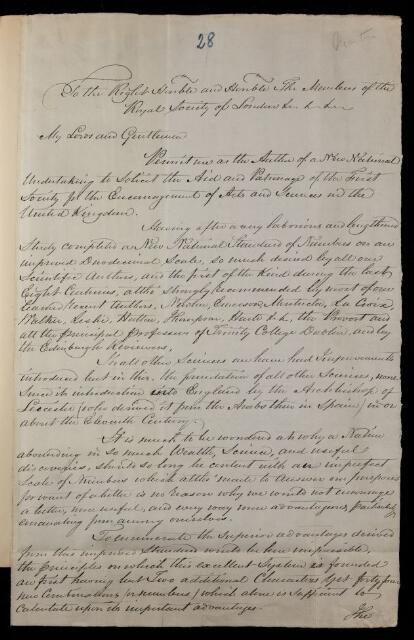 28
To the Right Honble and Honble The Members of the
Royal Society of London &c &c &c
My Lords and Gentlemen
Permit me as the Author of a New National
Undertaking to Solicit the Aid and Patronage of the First
Society for the Encouragement of Arts and Sciences in the
United Kingdom.
Having after a very laborious and lengthened
Study completed a New National Standard of Numbers on an
improved Duodecimal Scale, so much desired by all our
Scientific Authors, and the first of the Kind during the last
Eight Centuries, altho' strongly recommended by most of our
learned recent Authors, Newton, Emerson, La Croix
Walker, Leslie, Hutton, &c, the Provost and
all the principal Professors of Trinity College Dublin, and by
the Edinburgh Reviewers,
In all other Sciences we have had Improvements
introduced but in this, the foundation of all other Sciences, none
Since its introduction into England by the Archbishop of
Leicester (who derived it from the Arabs then in Spain) in or
about the Eleventh Century.
It is much to be wondered at why a Nation
abounding in so much Wealth, Science, and useful
discoveries, should so long be content with an imperfect
Scale of Numbers which altho' made to answer our purposes
for want of a better is no reason why we would not encourage
a better, more useful, and every way more advantageous, particularly
emanating from among ourselves.
To enumerate the Superior advantages derived
from this improved Standard would be here impossible,
the principles on which this excellent System is founded
are first having but Two additional Characters (yet forty four
new Combinations of numbers) which alone is sufficient to
Calculate upon its important advantages.
The